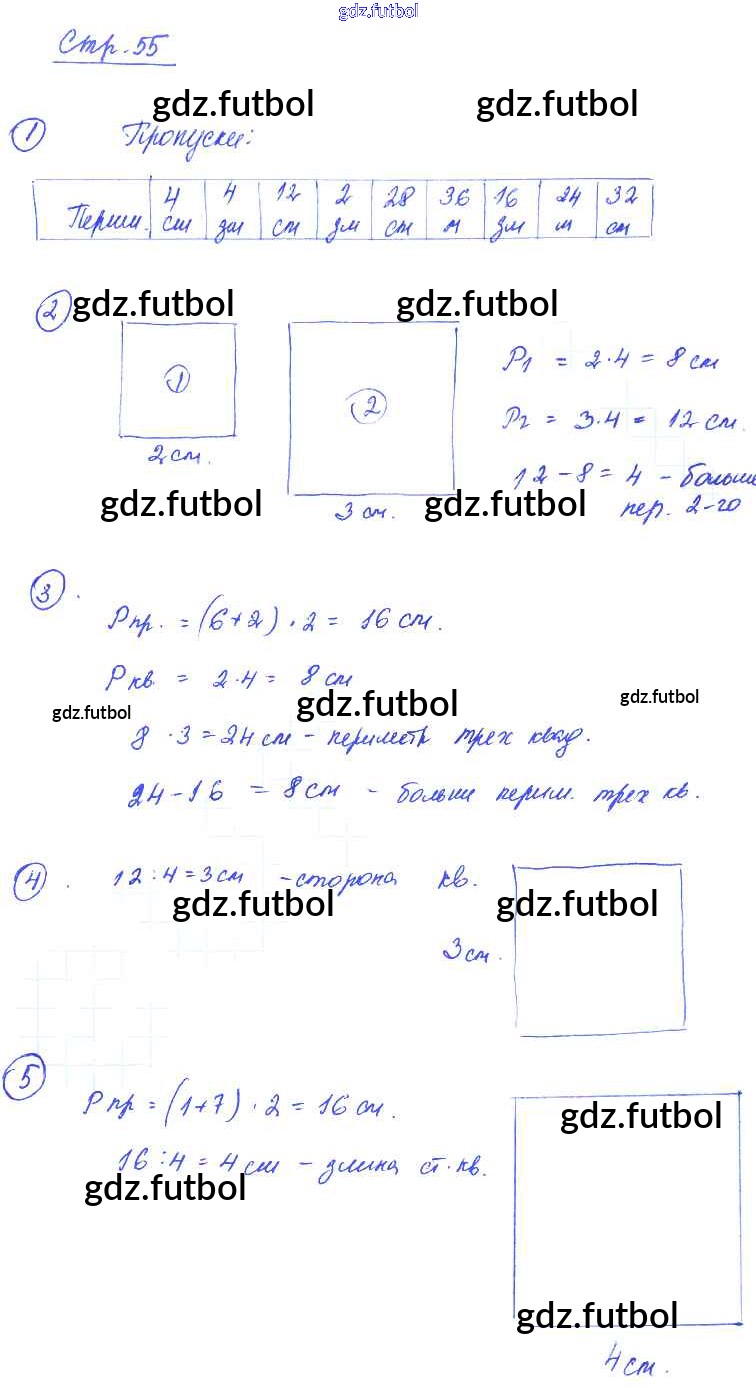 gdz.futbol
Стр. 55
gdz.futbol gdz.futbol
1 Пропуски:
Перим. 4 см 4 дм 12 см 2 дм 28 см 36 м 16 дм 24 м 32 см
2 gdz.futbol gdz.futbol
1
2
P1 = 2·4 = 8 см
P2 = 3·4 = 12 см.
2 см.
12 - 8 = 4 - больше
gdz.futbol gdz.futbol
3 см.
пер. 2-го
3.
Pпр. = (6+2) · 2 = 16 см.
Pкв = 2·4 = 8 см
gdz.futbol gdz.futbol gdz.futbol
8 · 3 = 24 см - периметр трех квад.
24 - 16 = 8 см - больше перим. трех кв.
4. 12 : 4 = 3 см - сторона кв.
gdz.futbol gdz.futbol
3 см.
5
Pпр = (1+7) · 2 = 16 см.
gdz.futbol
16 : 4 = 4 см - длина ст. кв.
gdz.futbol
gdz.futbol
4 см.